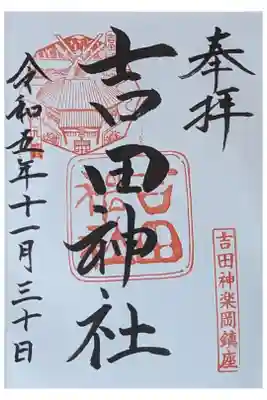 奉拝
吉田神楽岡鎮座
吉田神社
令和五年十一月三十日